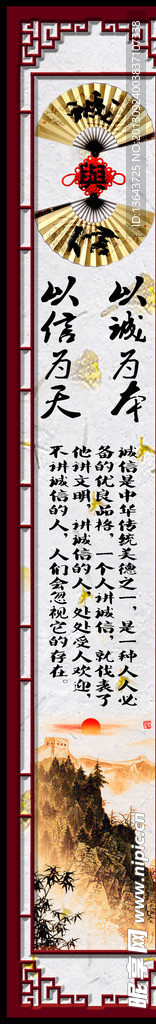 诚
信
以诚为本
以信为天
诚信是中华传统美德之一，是一种人人必
备的优良品格，一个人讲诚信，就代表了
他讲文明，讲诚信的人，处处受人欢迎，
不讲诚信的人，人们会忽视它的存在。
昵享网 www.nipic.cn
ID:13643725 NO:20130924003837107338